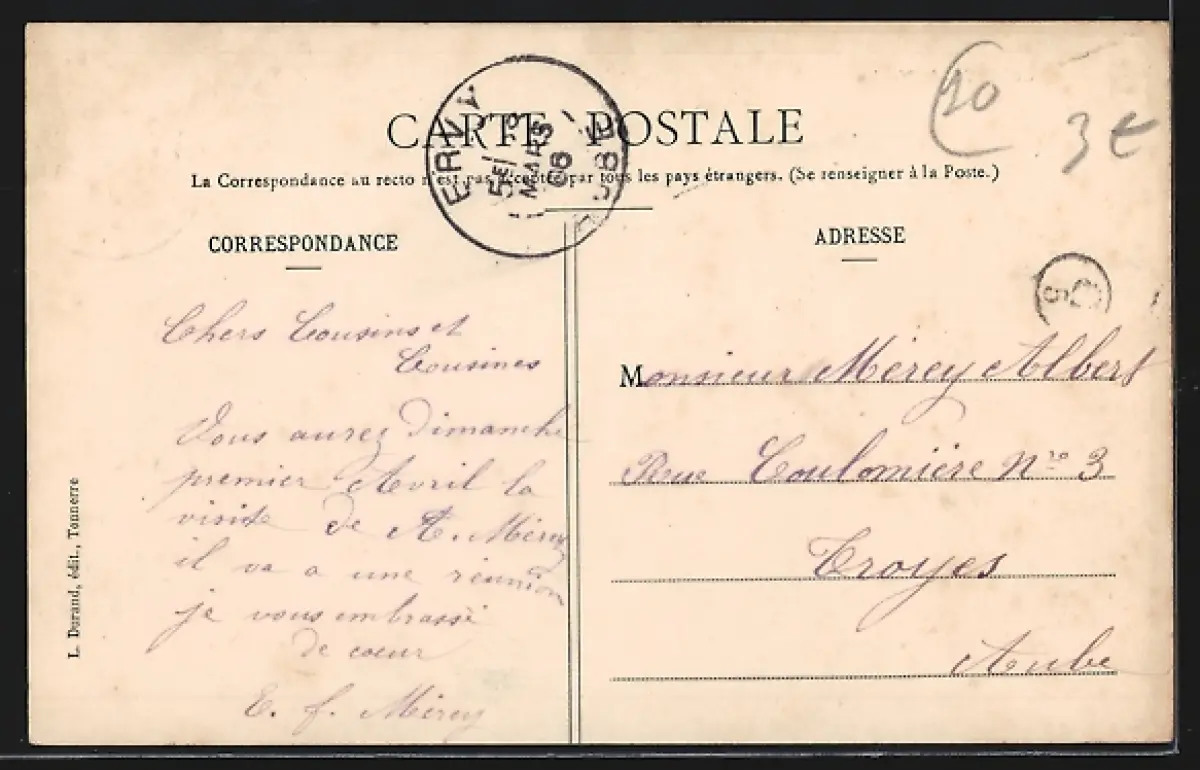 CARTE POSTALE
La Correspondance au recto n'est pas acceptée par tous les pays étrangers. (Se renseigner à la Poste.)
ERVY
MARS
AUBE
20
3 €
CORRESPONDANCE
Chers Cousins et
Cousines
Vous aurez Dimanche
premier Avril la
visite de A. Mérey
il va a une réunion
je vous embrasse
de cœur
E. f. Mérey
L. Durand, édit., Tonnerre
ADRESSE
5
Monsieur Mérey Albert
Rue Coulomière Nro 3
Troyes
Aube